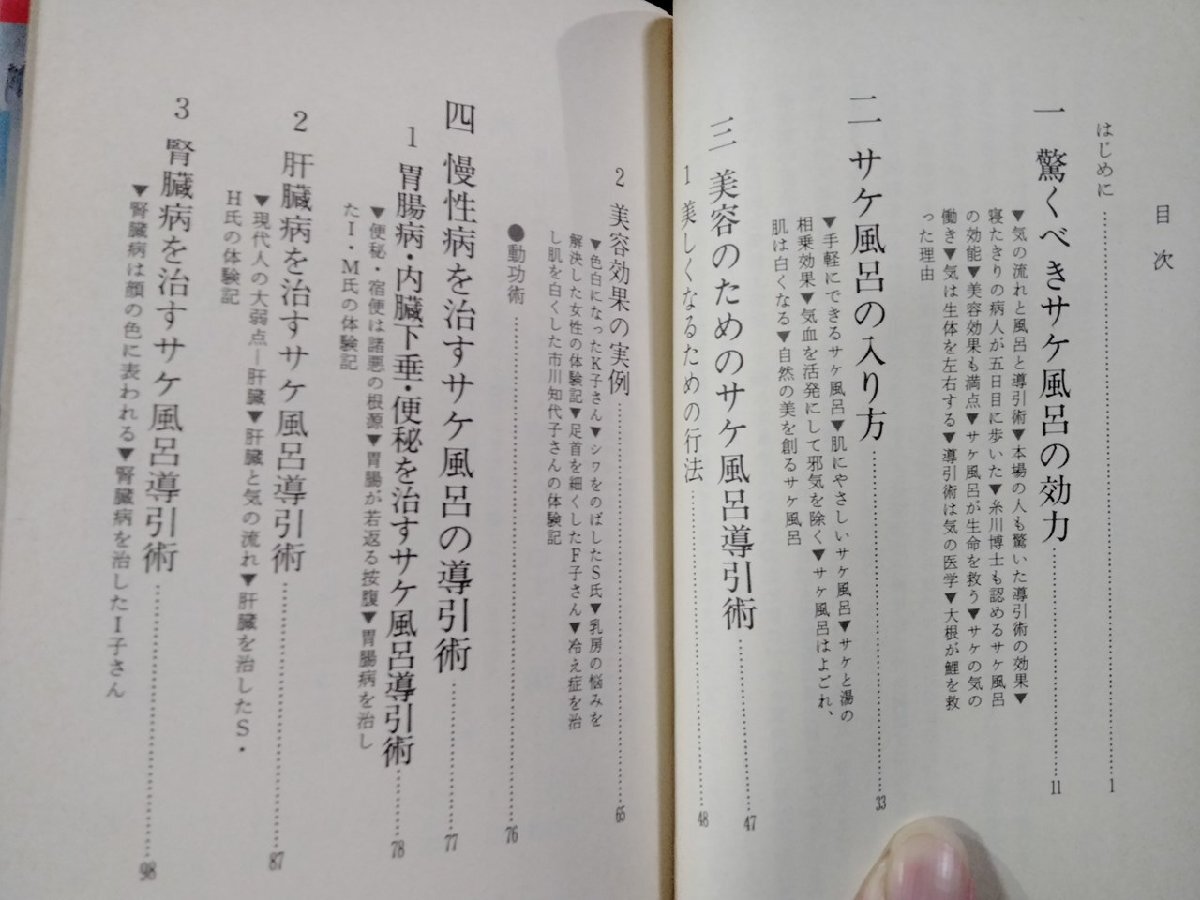 目次
はじめに……1
一 驚くべきサケ風呂の効力……11
▼気の流れと風呂と導引術▼本場の人も驚いた導引術の効果▼
寝たきりの病人が五日目に歩いた▼糸川博士も認めるサケ風呂
の効能▼美容効果も満点▼サケ風呂が生命を救う▼サケの気の
働き▼気は生体を左右する▼導引術は気の医学▼大根が鯉を救
った理由
二 サケ風呂の入り方……33
▼手軽にできるサケ風呂▼肌にやさしいサケ風呂▼サケと湯の
相乗効果▼気血を活発にして邪気を除く▼サケ風呂はよごれ、
肌は白くなる▼自然の美を創るサケ風呂
三 美容のためのサケ風呂導引術……47
1 美しくなるための行法……48
2 美容効果の実例……65
▼色白になったK子さん▼シワをのばしたS氏▼乳房の悩みを
解決した女性の体験記▼足首を細くしたF子さん▼冷え症を治
し肌を白くした市川知代子さんの体験記
●動功術……76
四 慢性病を治すサケ風呂の導引術……77
1 胃腸病・内臓下垂・便秘を治すサケ風呂導引術……78
▼便秘・宿便は諸悪の根源▼胃腸が若返る按腹▼胃腸病を治し
たI・M氏の体験記
2 肝臓病を治すサケ風呂導引術……87
▼現代人の大弱点―肝臓▼肝臓と気の流れ▼肝臓を治したS・
H氏の体験記
3 腎臓病を治すサケ風呂導引術……98
▼腎臓病は顔の色に表われる▼腎臓病を治したI子さん